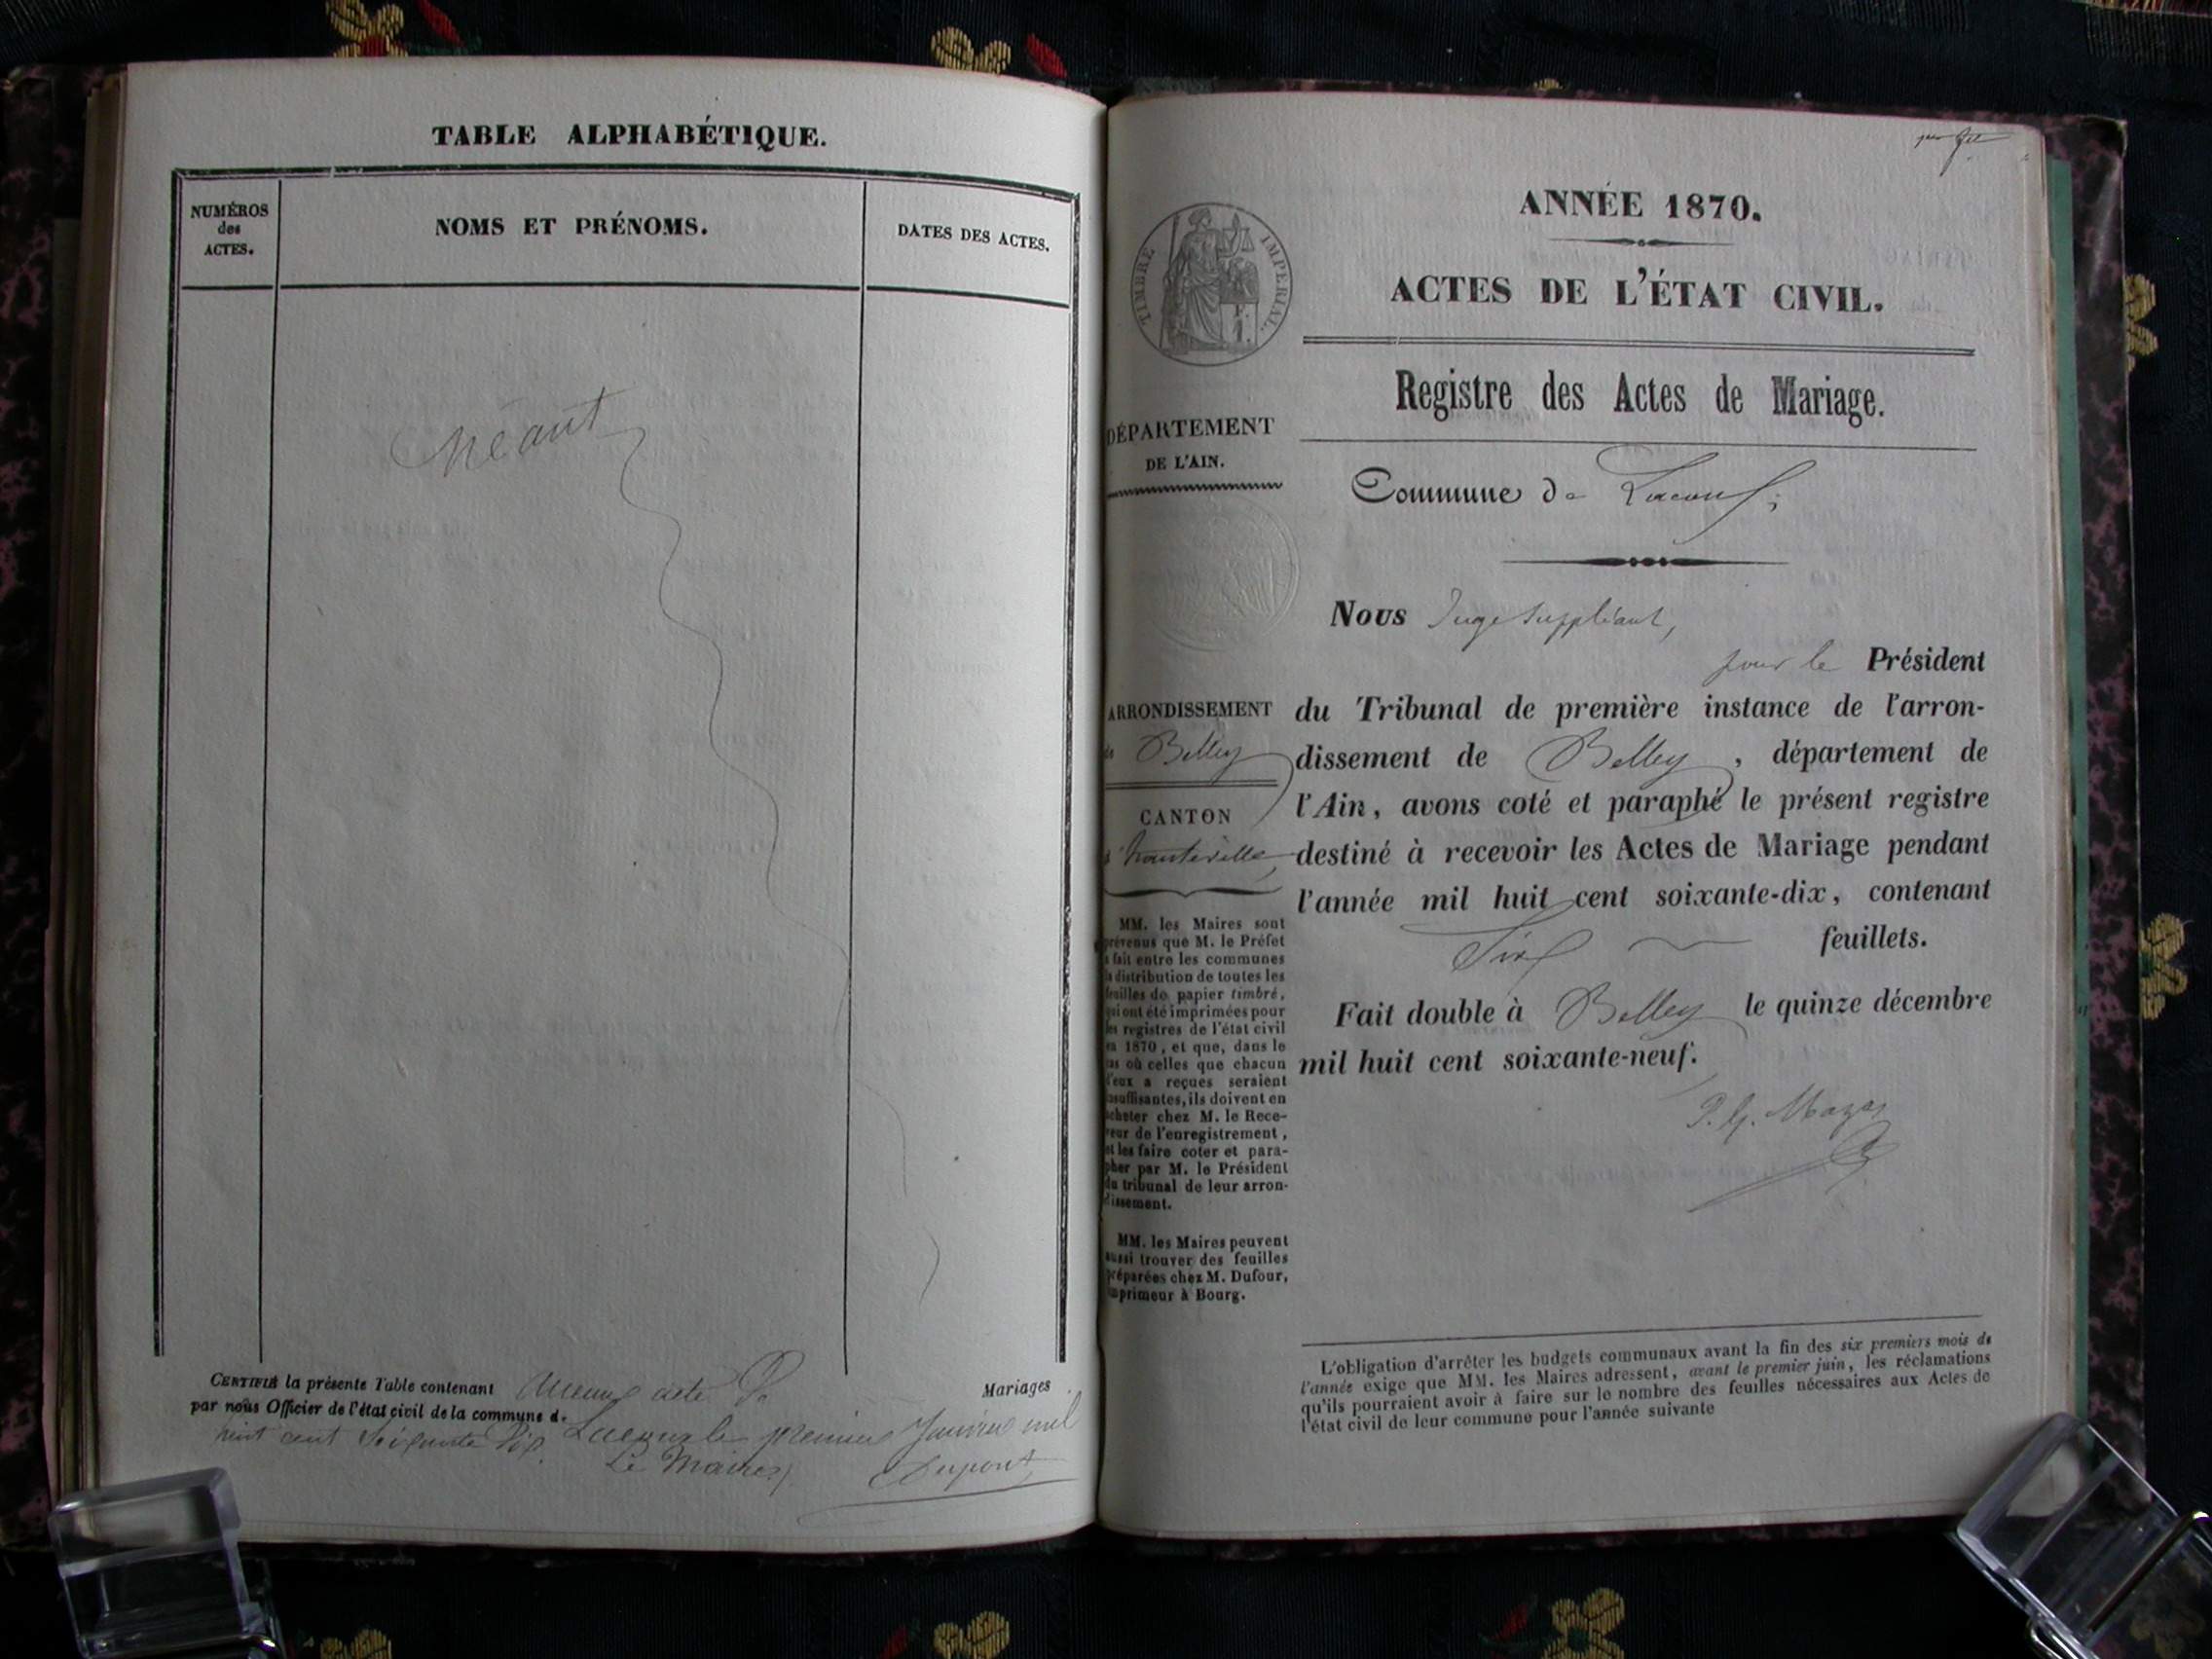 TABLE ALPHABÉTIQUE.
NUMÉROS
des
ACTES.
NOMS ET PRÉNOMS.
DATES DES ACTES.
Néant
CERTIFIÉ la présente Table contenant Aucun acte De Mariages
par nous Officier de l'état civil de la commune d. Lacoux le premier Janvier mil
huit cent soixante Dix.
Le Maire
Dupont
ANNÉE 1870.
ACTES DE L'ÉTAT CIVIL.
Registre des Actes de Mariage.
TIMBRE IMPÉRIAL.
DÉPARTEMENT
DE L'AIN.
Commune de Lacoux
ARRONDISSEMENT
de Belley
CANTON
d'hauteville
MM. les Maires sont
prévenus que M. le Préfet
a fait entre les communes
la distribution de toutes les
feuilles de papier timbré,
qui ont été imprimées pour
les registres de l'état civil
en 1870, et que, dans le
cas où celles que chacun
d'eux a reçues seraient
insuffisantes, ils doivent en
acheter chez M. le Rece-
veur de l'enregistrement,
et les faire coter et para-
pher par M. le Président
du tribunal de leur arron-
dissement.
MM. les Maires peuvent
aussi trouver des feuilles
préparées chez M. Dufour,
imprimeur à Bourg.
Nous Juge Suppléant,
pour le Président
du Tribunal de première instance de l'arron-
dissement de Belley, département de
l'Ain, avons coté et paraphé le présent registre
destiné à recevoir les Actes de Mariage pendant
l'année mil huit cent soixante-dix, contenant
Six feuillets.
Fait double à Belley le quinze décembre
mil huit cent soixante-neuf.
L'obligation d'arrêter les budgets communaux avant la fin des six premiers mois de
l'année exige que MM. les Maires adressent, avant le premier juin, les réclamations
qu'ils pourraient avoir à faire sur le nombre des feuilles nécessaires aux Actes de
l'état civil de leur commune pour l'année suivante